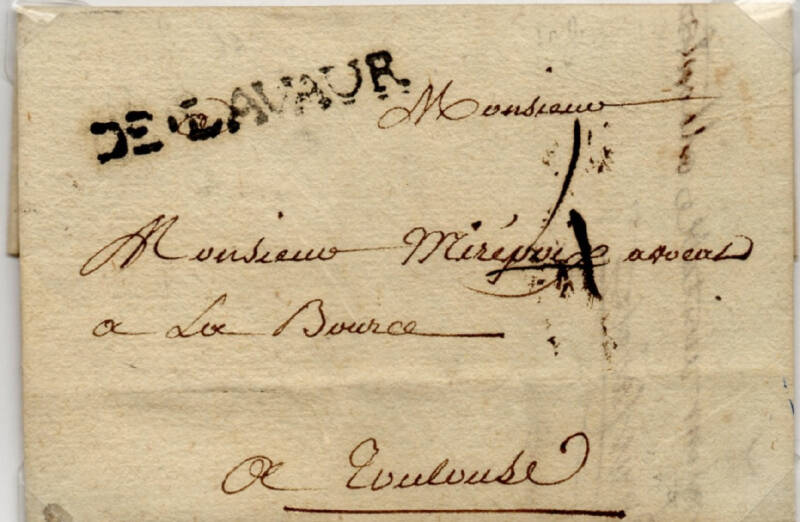 DE LAVAUR
Monsieur
4
Monsieur Mirépoix avocat
a La Bource
a Toulouse